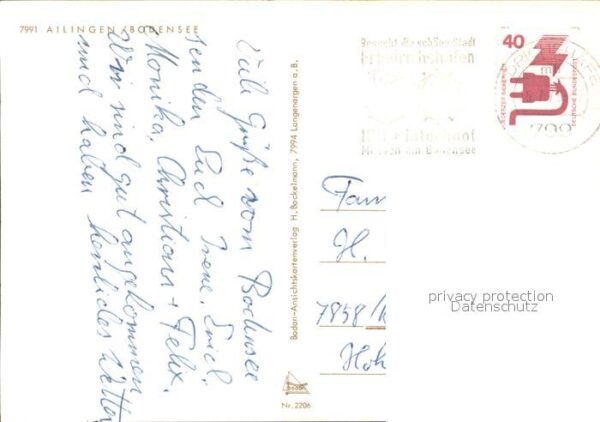 7991 AILINGEN/BODENSEE
Viele Grüße vom Bodensee
senden Euch Irene, Emil,
Monika, Christian + Felix.
Wir sind gut angekommen
und haben herrliches Wetter
Bodan-Ansichtskartenverlag H. Bockelmann, 7994 Langenargen a. B.
Nr. 2206
Besucht die schöne Stadt
Friedrichshafen
Messen am Bodensee
40
JEDERZEIT SICHERHEIT
DEUTSCHE BUNDESPOST
799
Fam
H.
7858/
Hoh
privacy protection
Datenschutz